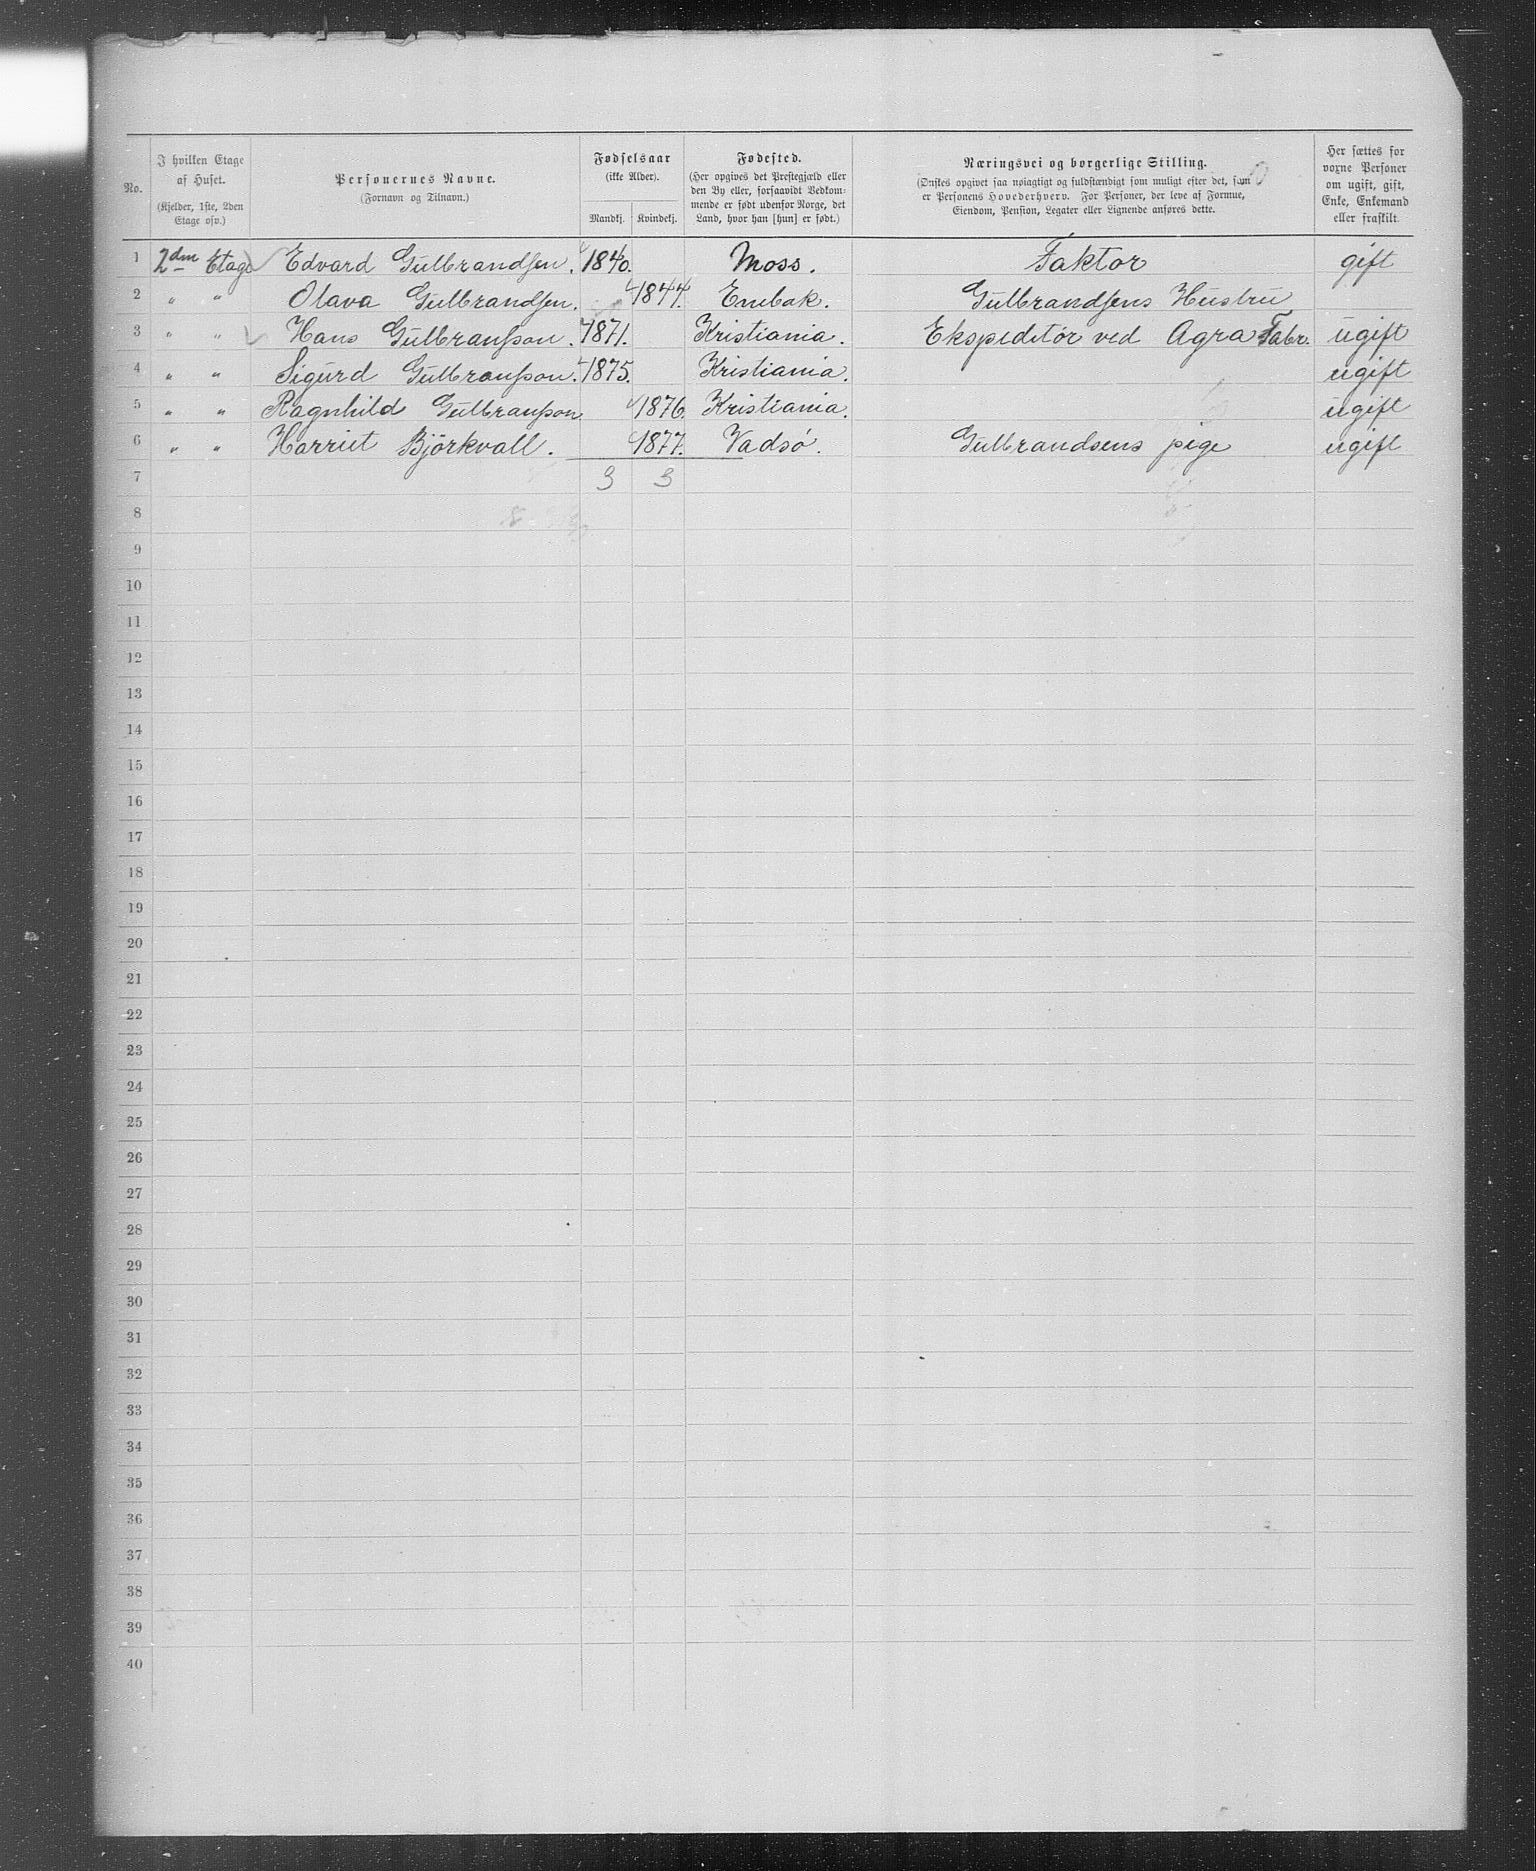 No. | I hvilken Etage af Huset. (Kjelder, 1ste, 2den Etage osv.) | Personernes Navne. (Fornavn og Tilnavn.) | Fødselsaar (ikke Alder). Mandkj. | Kvindekj. | Fødested. (Her opgives det Prestegjæld eller den By eller, forsaavidt Vedkommende er født udenfor Norge, det Land, hvor han [hun] er født.) | Næringsvei og borgerlige Stilling. (Ønskes opgivet saa nøiagtigt og fuldstændigt som muligt efter det, som er Personens Hovederhverv. For Personer, der leve af Formue, Eiendom, Pension, Legater eller Lignende anføres dette. | Her sættes for voxne Personer om ugift, gift, Enke, Enkemand eller fraskilt.
1 2den Etage Edvard Gulbrandsen. 1840. Moss. Faktor gift
2 " " Olava Gulbrandsen. 1844. Enebak. Gulbrandsens Hustru
3 " " Hans Gulbransson. 1871. Kristiania. Ekspeditør ved Agra Fabr. ugift
4 " " Sigurd Gulbransson. 1875. Kristiania. ugift
5 " " Ragnhild Gulbransson 1876. Kristiania. ugift
6 " " Harriet Björkvall. 1877. Vadsø. Gulbrandsens pige ugift
7 3 3
8
9
10
11
12
13
14
15
16
17
18
19
20
21
22
23
24
25
26
27
28
29
30
31
32
33
34
35
36
37
38
39
40